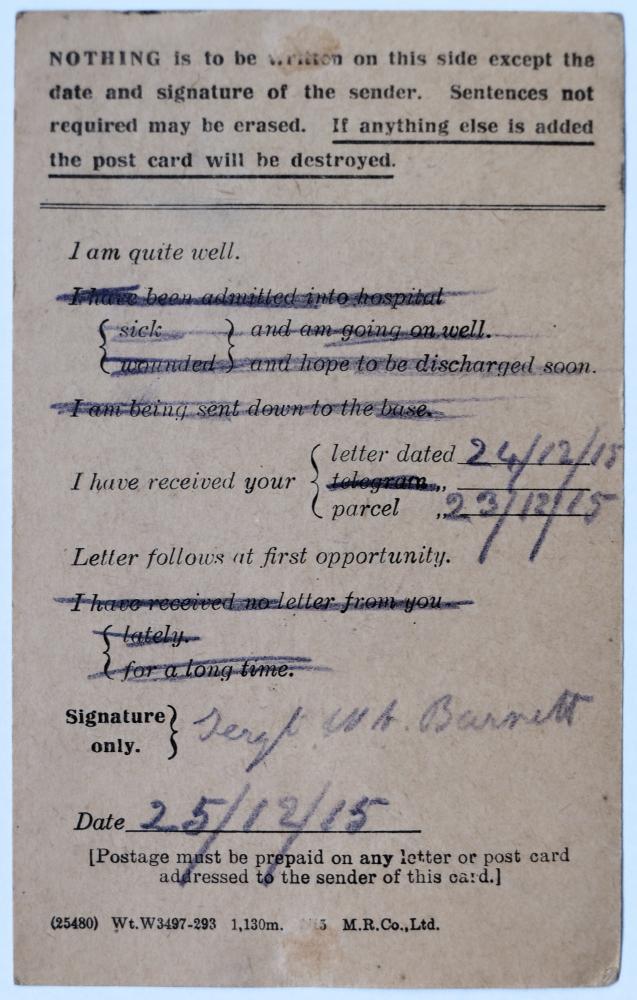 NOTHING is to be written on this side except the
date and signature of the sender. Sentences not
required may be erased. If anything else is added
the post card will be destroyed.
I am quite well.
I have been admitted into hospital
{ sick } and am going on well.
{ wounded } and hope to be discharged soon.
I am being sent down to the base.
letter dated 24/12/15
I have received your { telegram ,,
parcel ,, 23/12/15
Letter follows at first opportunity.
I have received no letter from you
{ lately.
{ for a long time.
Signature } Sergt Barnett
only.
Date 25/12/15
[Postage must be prepaid on any letter or post card
addressed to the sender of this card.]
(25480) Wt.W3497-293 1,130m. M.R.Co.,Ltd.